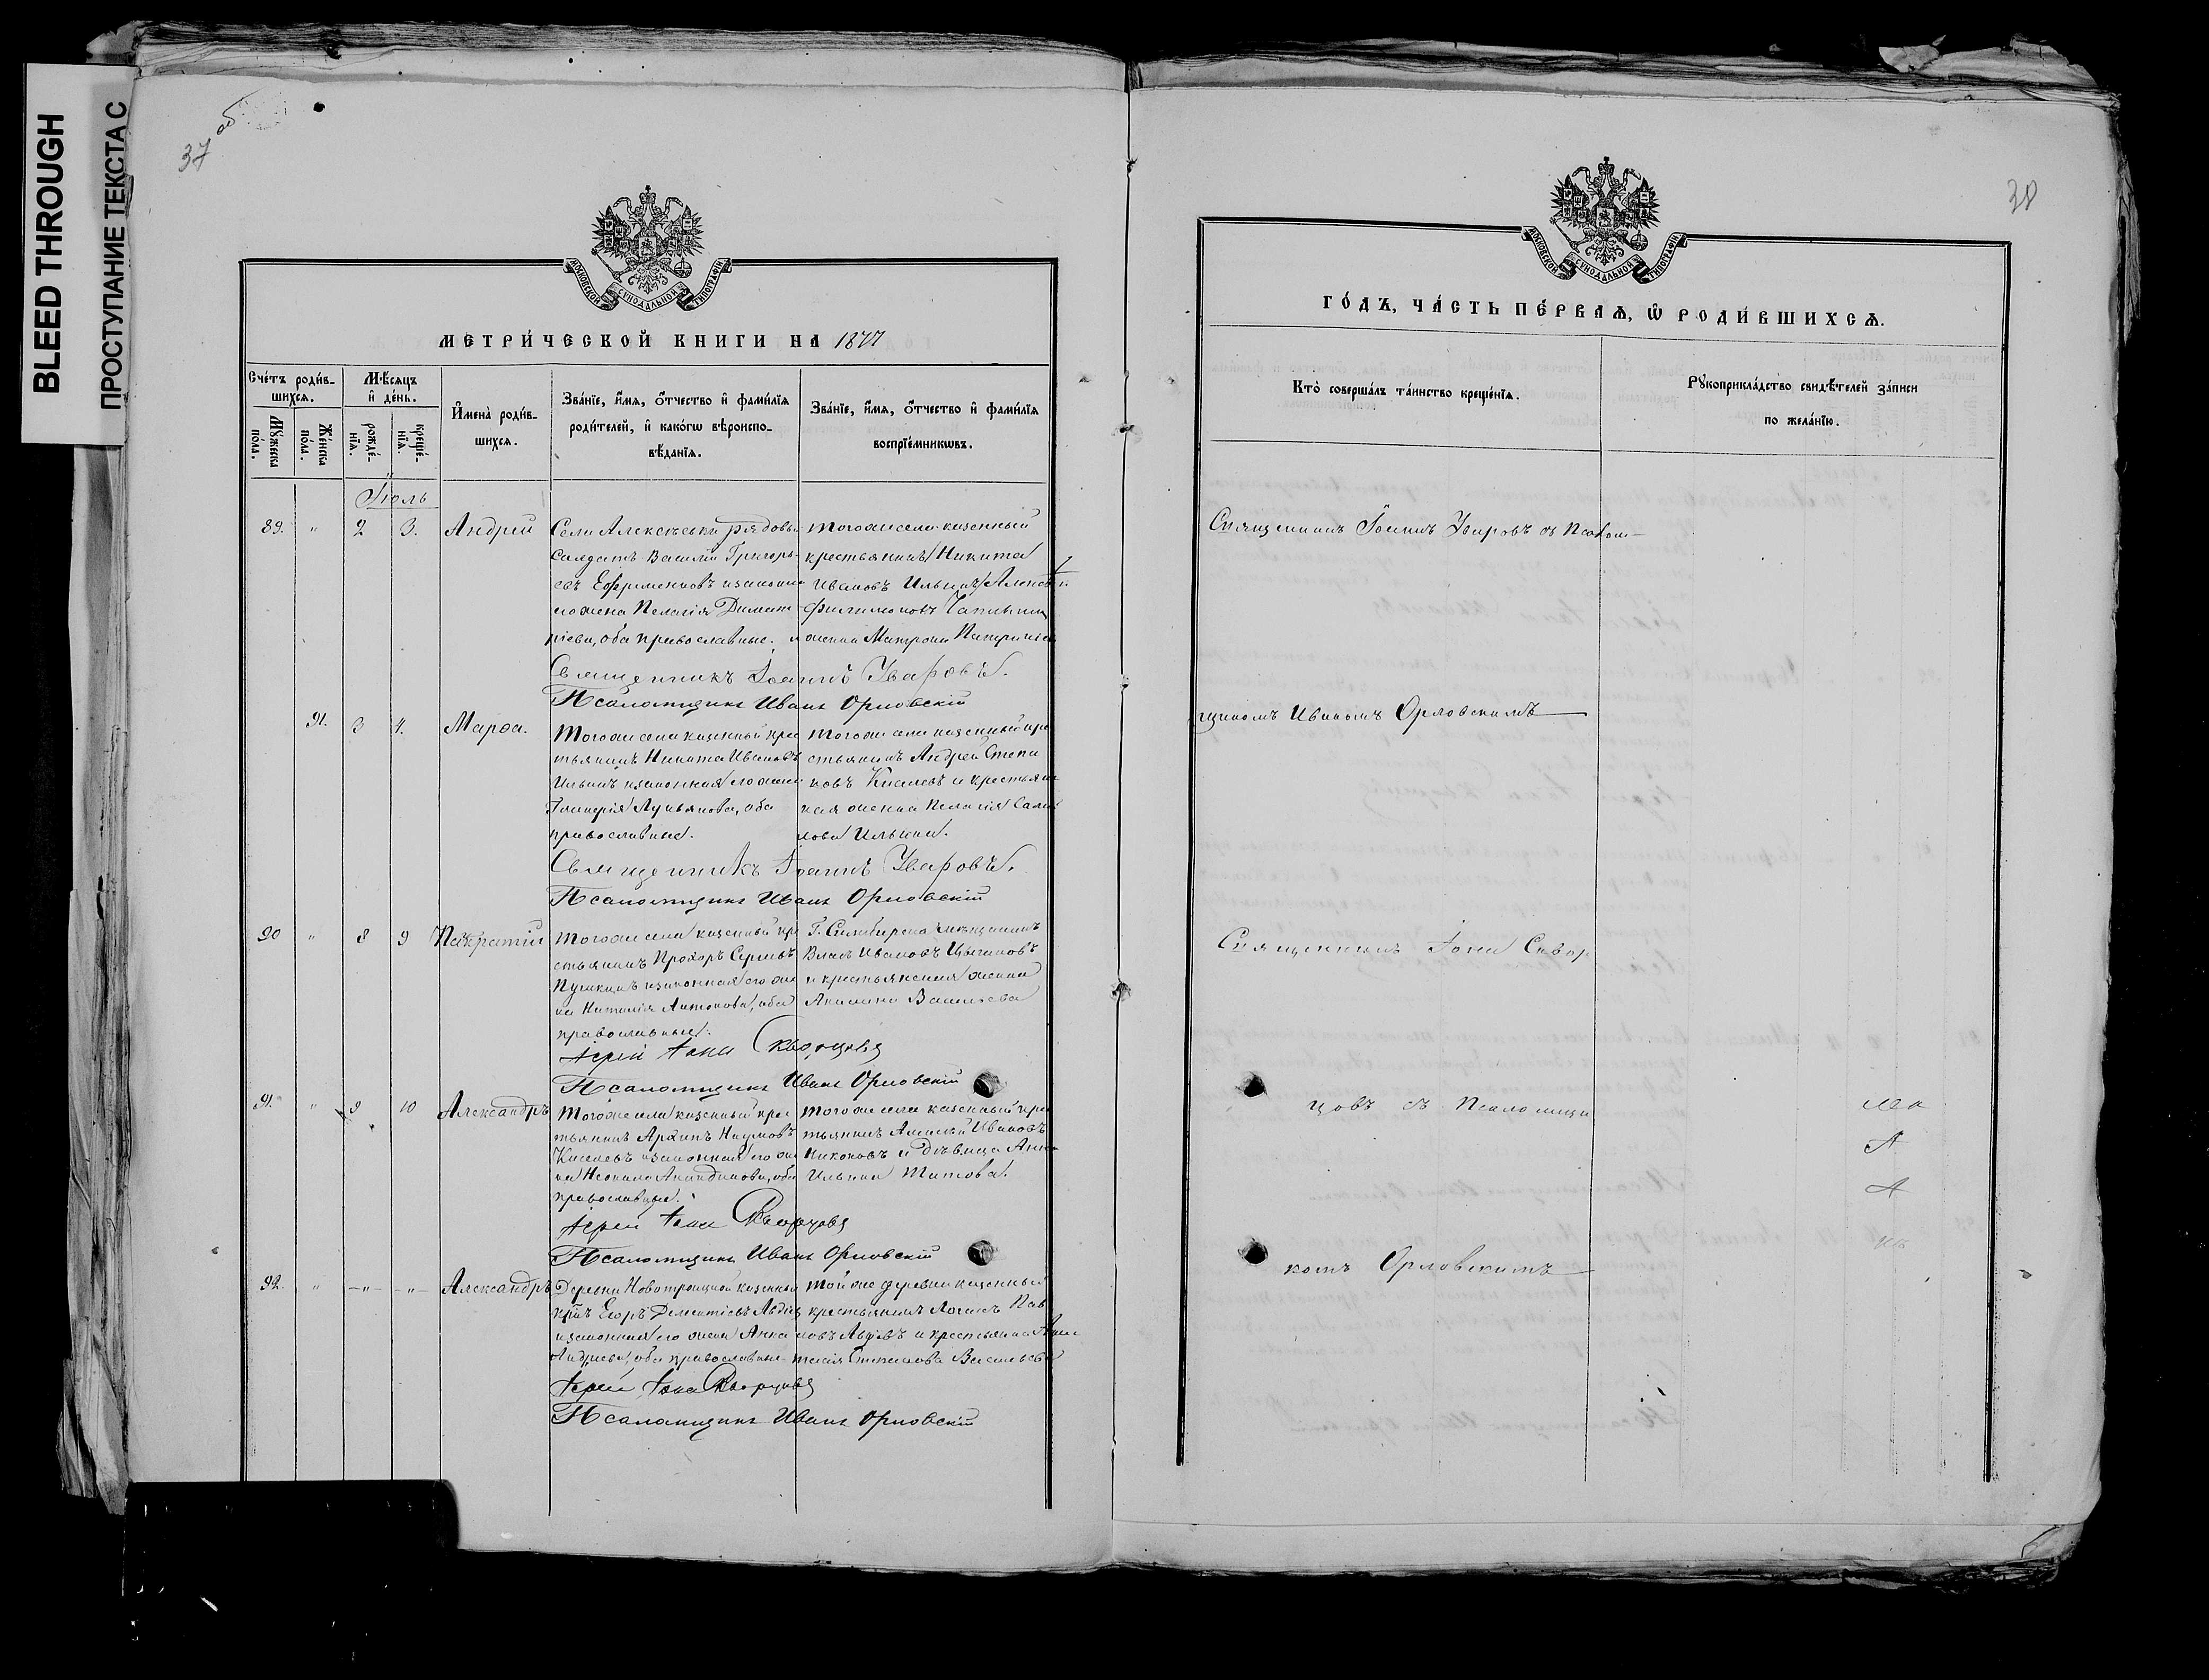 BLEED THROUGH
ПРОСТУПАНИЕ ТЕКСТА С
37 об
МОСКОВСКОЙ СУНОДАЛЬНОЙ ТИПОГРАФІИ
МЕТРИ́ЧЕСКОЙ КНИГИ НА 1877
Сче́тъ роди́в-
шихсѧ.
Мѣ́сѧцъ
и҆ де́нь.
И҆мена̀ роди́в-
шихсѧ.
Зва́нїе, и҆́мѧ, ѻ҆́тчество и҆ фами́лїѧ
роди́телей, и҆ како́гѡ вѣроиспо-
вѣ́данїѧ.
Зва́нїе, и҆́мѧ, ѻ҆́тчество и҆ фами́лїѧ
воспрїе́мникѡвъ.
Мꙋ́жеска
по́ла.
Же́нска
по́ла.
рожде́-
нїѧ.
креще́-
нїѧ.
Іюль
89. " 2 3. Андрей
Села Алексѣевки рядовой
солдатъ Василій Григорь-
евъ Ефремовъ и законна
его жена Пелагія Димит-
ріева, оба православные.
того же села казенный
крестьянинъ Никита
Ивановъ Ильинъ Алексѣй
Филимоновъ
жена Матрона
Священникъ Іоаннъ Уваровъ.
Псаломщикъ Иванъ Орловскій
91. 3 4. Марѳа.
Того же села казенный кре
тьянинъ Никита Ивановъ
Ильинъ и законная его жена
Гликерія Лукьянова, оба
православные.
Того же села казенный кре
стьянинъ Андрей Степа
новъ Киселевъ и крестьян
ская жена Пелагія Самой
лова Ильина.
Священникъ Іоаннъ Уваровъ.
Псаломщикъ Иванъ Орловскій
90 " 8 9 Панкратій
Того же села казенный кр
стьянинъ Прохоръ Сергѣевъ
Пушкинъ и законная его же
на Наталія Антонова, оба
православные.
Г. Симбирска мѣщанинъ
Власъ Ивановъ Цыгановъ
и крестьянская жена
Акилина Васильева
Іерей Іона Скворцовъ
Псаломщикъ Иванъ Орловскій
91. " 9 10 Александръ
Того же села казенный кре
тьянинъ Архипъ Наумовъ
Киселевъ и законная его же
на Неонила Акиндинова, оба
православные.
того же села казенный кре
тьянинъ Алексѣй Ивановъ
Никоновъ и дѣвица Анна
Ильина Титова.
Іерей Іона Скворцовъ
Псаломщикъ Иванъ Орловскій
92. " —"— —"— Александръ
Деревни Новотроицкой казенный
кр̃нъ Егоръ Дементіевъ
и законная его жена Анна
Андреева, оба православные
той же деревни казенный
крестьянинъ Логинъ Пав
ловъ и крестьянка Анас
тасія Степанова Васильева
Іерей Іона Скворцовъ
Псаломщикъ Иванъ Орловскій
38
МОСКОВСКОЙ СУНОДАЛЬНОЙ ТИПОГРАФІИ
ГО́ДЪ, ЧА́СТЬ ПЕ́РВАѦ, Ѡ҆ РОДИ́ВШИХСѦ.
Кто̀ соверша́лъ та́инство креще́нїѧ.
Рꙋкоприкла́дство свидѣ́телей за́писи
по жела́нїю.
Священникъ Іоаннъ Уваровъ съ Псалом-
щикомъ Иваномъ Орловскимъ
Священникъ Іона Сквор
цовъ съ Псаломщи
комъ Орловскимъ